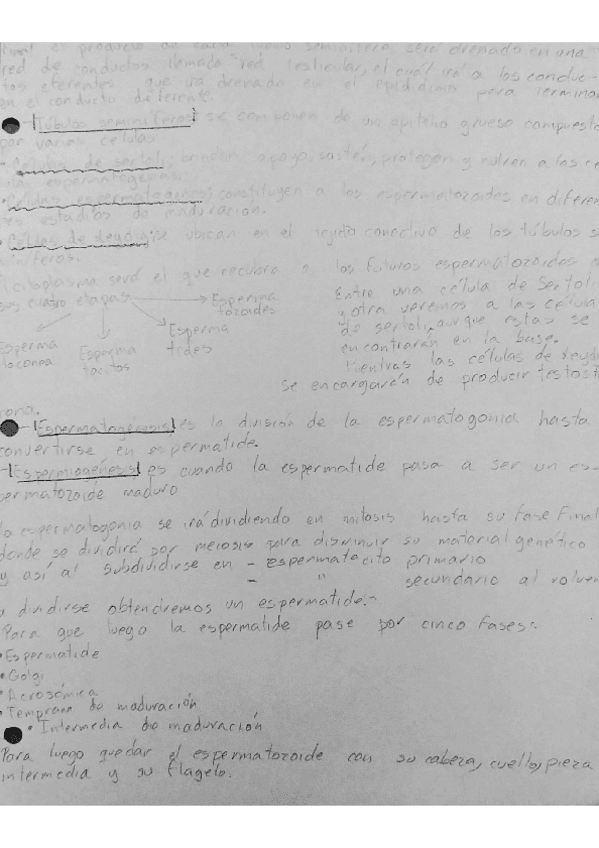 el producto de cada tubulo seminifero, será drenado en una
red de conductos llamada "red testicular, el cuál irá a los conduc-
tos eferentes que va drenado en el epididimo para terminar
en el conducto diferente.
Túbulos seminiferos: se componen de un epitelio grueso compuesto
por varias células.
Células de sertoli: brindan apoyo, sostén, protegen y nutren a las cé
lulas espermatogenas.
Células espermatogenas: constituyen a los espermatozoides en diferen
tes estadios de maduración.
Célles de leydig: se ubican en el tejido conectivo de los túbulos se
miniferos.
citoplasma será el que recubra a los futuros espermatozoides
sus cuatro etapas.
Esperma
tozoides
Esperma
tides
Esperma
tocitos
Esperma
togonea
Entre una célula de Sertoli
y otra veremos a las célula
de sertoli, aunque estas se
encontrarán en la base.
Mientras las células de leydig
se encargarán de producir testost
rona.
Espermatogenesis es la división de la espermatogonia hasta
convertirse en espermatide.
Espermiogénesis es cuando la espermatide pasa a ser un es-
permatozoide maduro
la espermatogonia se irá dividiendo en mitosis hasta su fase final
donde se dividirá por meiosis para disminuir su material genético
y así al subdividirse en - espermatocito primario
- " secundario al volver
a dividirse obtendremos un espermatide.-
Para que luego la espermatide pase por cinco fases:
• Espermatide
• Golgi
• Acrosómica
• Temprana de maduración
• Intermedia de maduración
Para luego quedar el espermatozoide con su cabeza, cuello, pieza
intermedia y su flagelo.